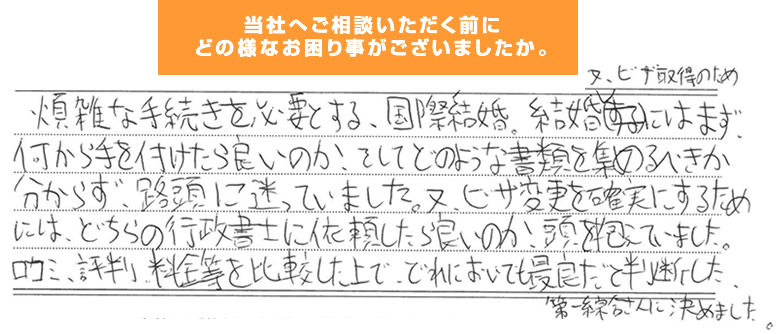 当社へご相談いただく前に
どの様なお困り事がございましたか。
又、ビザ取得のため
煩雑な手続きを必要とする、国際結婚。結婚するにはまず、
何から手を付けたら良いのか、そしてどのような書類を集めるべきか
分からず、路頭に迷っていました。又、ビザ変更を確実にするため
には、どちらの行政書士に依頼したら良いのか、頭を抱えていました。
口コミ、評判、料金等を比較した上で、どれにおいても最良だと判断した、
第一綜合さんに決めました。